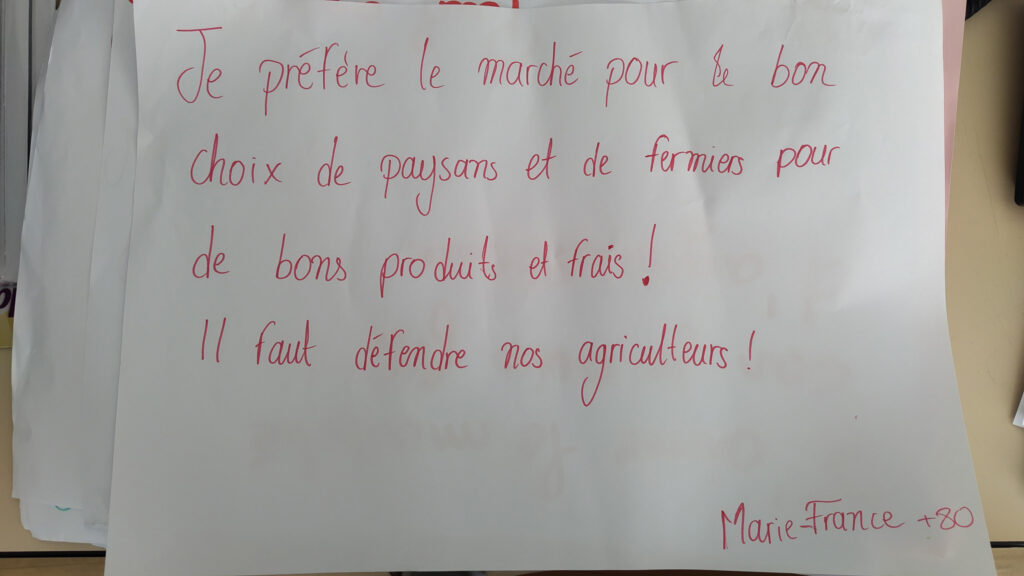 Je préfère le marché pour le bon
choix de paysans et de fermiers pour
de bons produits et frais !
Il faut défendre nos agriculteurs !
Marie-France +80